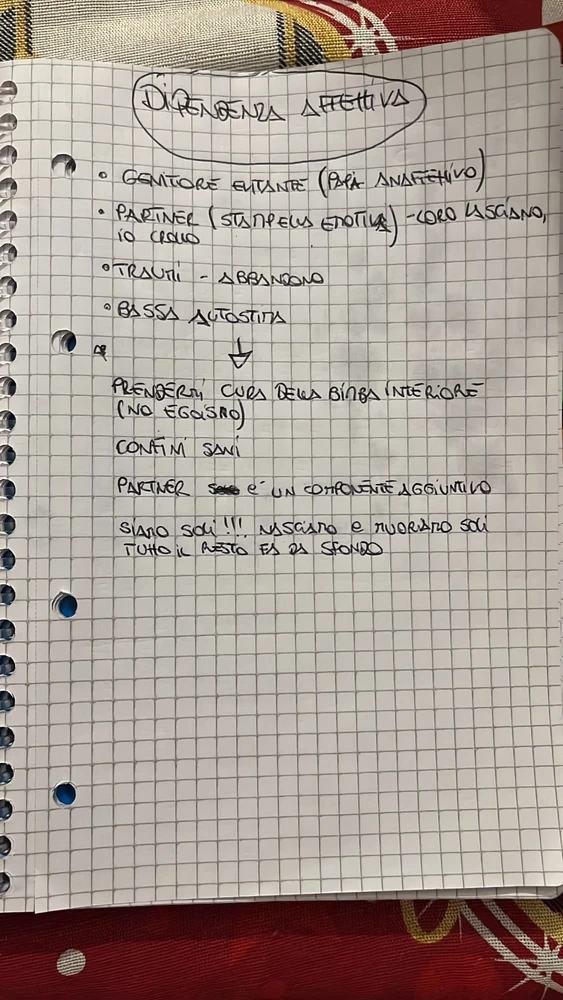 DIPENDENZA AFFETTIVA
• GENITORE EVITANTE (PAPÀ ANAFFETTIVO)
• PARTNER (STAMPELLA EMOTIVA) - LORO LASCIANO,
IO CROLLO
• TRAUMI - ABBANDONO
• BASSA AUTOSTIMA
↓
PRENDERMI CURA DELLA BIMBA INTERIORE
(NO EGOISMO)
CONFINI SANI
PARTNER È UN COMPONENTE AGGIUNTIVO
SIAMO SOLI!!! NASCIAMO E MUORIAMO SOLI
TUTTO IL RESTO FA DA SFONDO